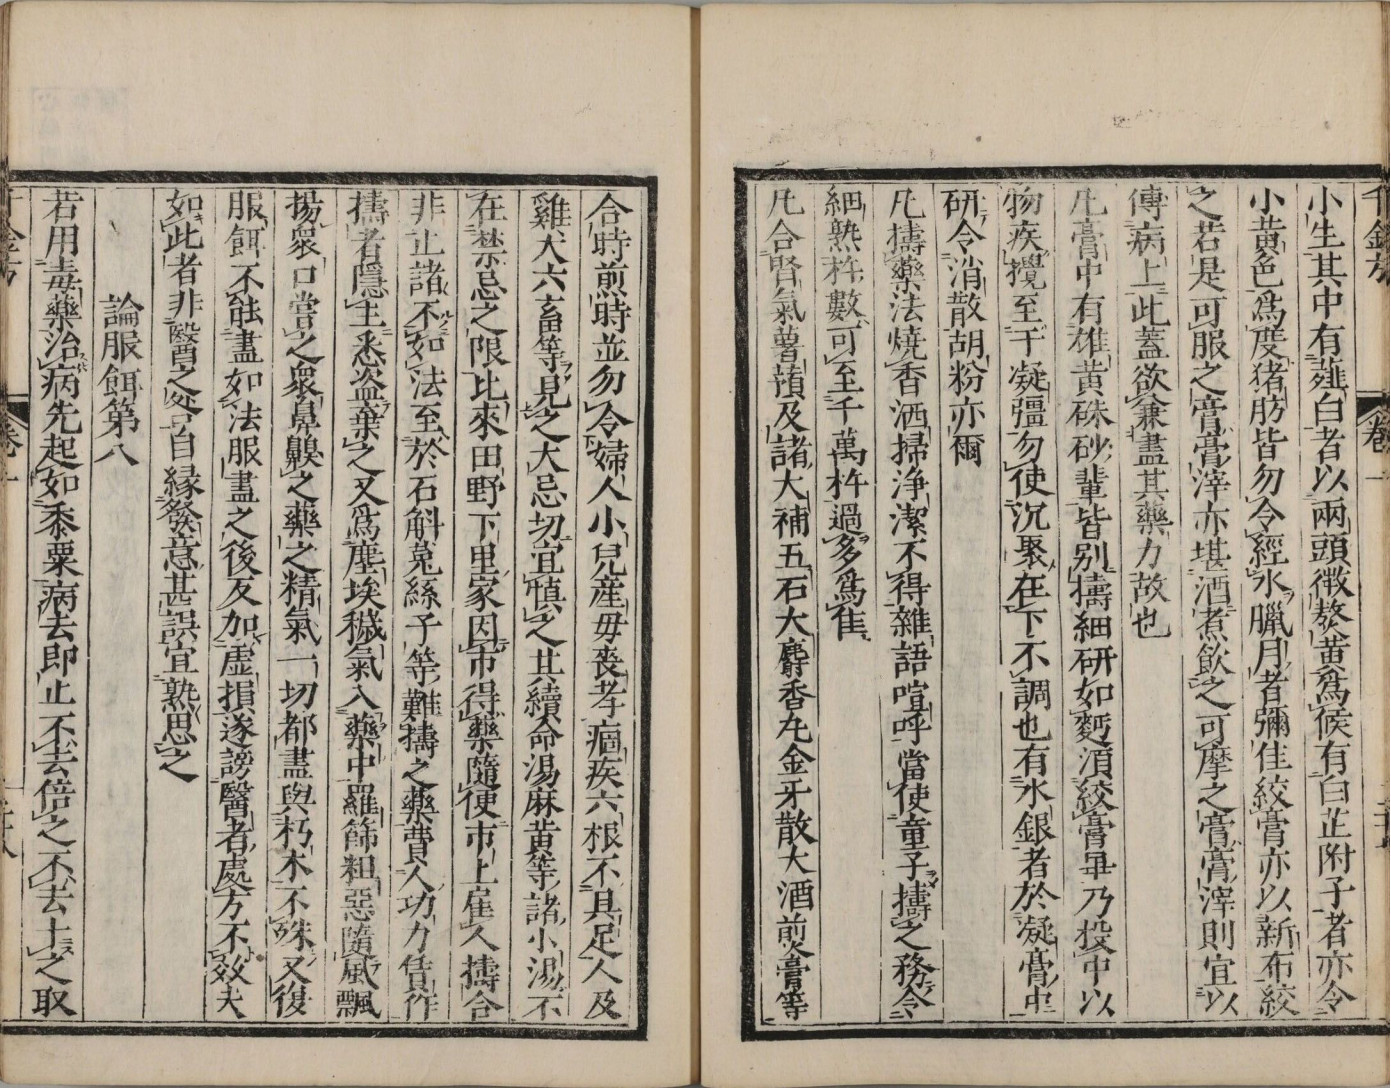 千金方
卷一
小生其中有薤白者以兩頭微熬黃爲候有白芷附子者亦令
小黃色爲度猪肪皆勿令經水臘月者彌佳絞膏亦以新布絞
之若是可服之膏膏滓亦堪酒煮飲之可摩之膏膏滓則宜以
傅病上此蓋欲兼盡其藥力故也
凡膏中有雄黃硃砂輩皆別擣細研如麪須絞膏畢乃投中以
物疾攪至于凝彊勿使沉聚在下不調也有水銀者於凝膏中
研令消散胡粉亦爾
凡擣藥法燒香洒掃淨潔不得雜語喧呼當使童子擣之務令
細熟杵數可至千萬杵過多爲佳
凡合腎氣薯蕷及諸大補五石大麝香丸金牙散大酒煎膏等
合時煎時並勿令婦人小兒產母喪孝痼疾六根不具足人及
雞犬六畜等見之大忌切宜慎之其續命湯麻黃等諸小湯不
在禁忌之限比來田野下里家因市得藥隨便市上雇人擣合
非止諸不如法至於石斛菟絲子等難擣之藥費人功力賃作
擣者隱主悉盜棄之又爲塵埃穢氣入藥中羅篩粗惡隨風飄
揚衆口嘗之衆鼻齅之藥之精氣一切都盡與朽木不殊又復
服餌不能盡如法服盡之後反加虛損遂謗醫者處方不效夫
如此者非醫之咎自緣發意甚誤宜熟思之
論服餌第八
若用毒藥治病先起如黍粟病去即止不去倍之不去十之取
千金方
卷一
二十八